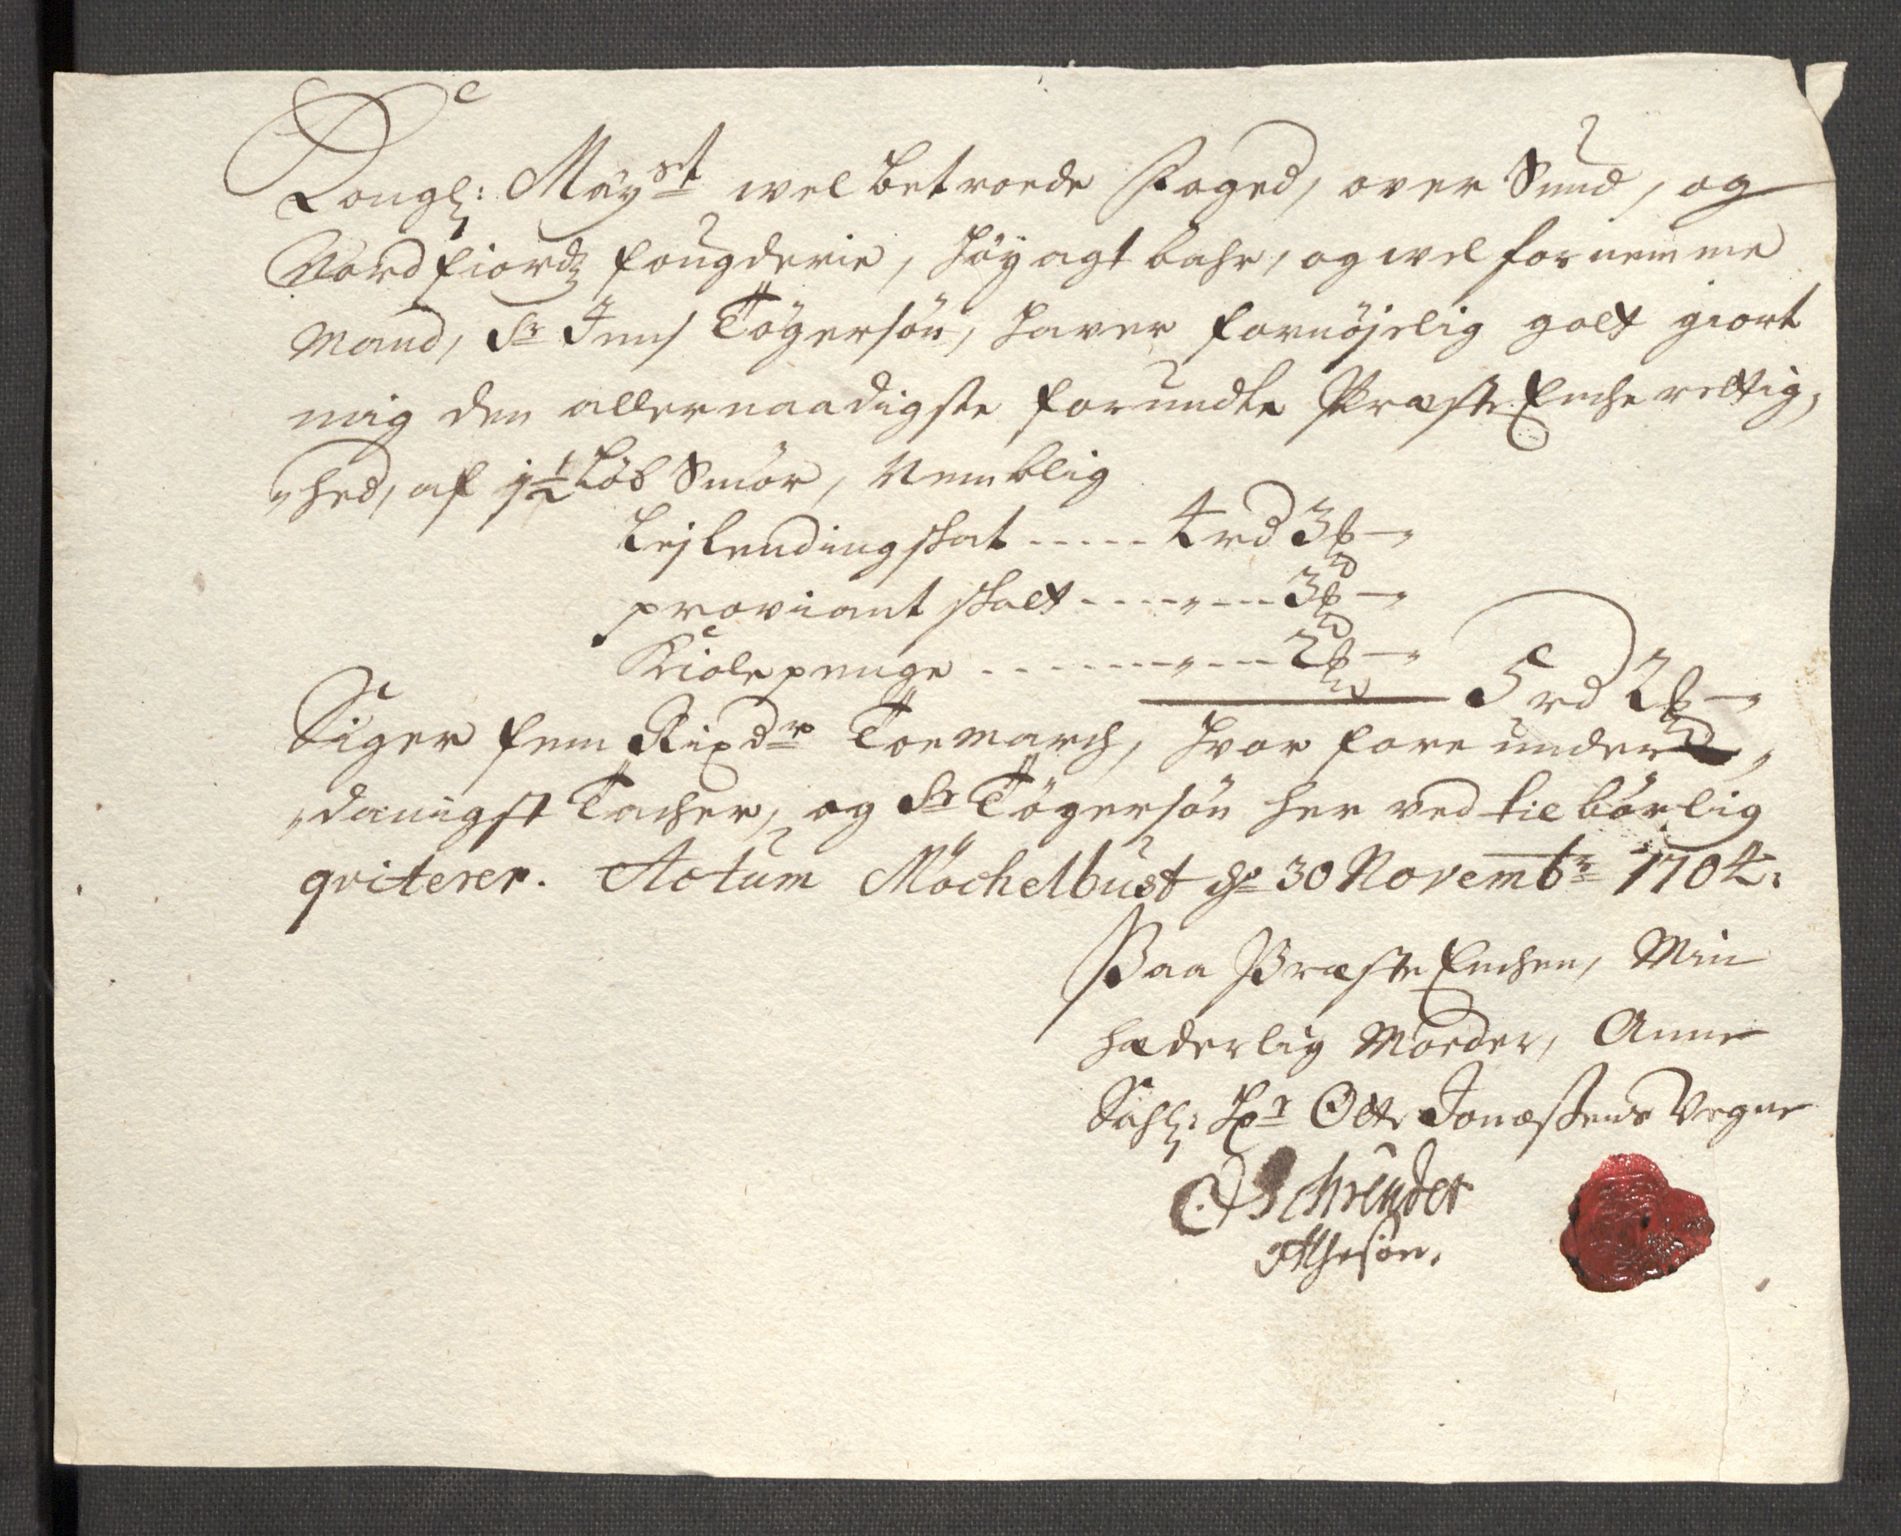 Kongl: Mayst welbetroede Foged, over Sund, og
Nordfiordz fougderie, høyagtbahr, og welfornemme
Mand, Sr Jens Tøgersøn, haver fornøjelig golt giort
mig den allernaadigste forundte Præste Encherettig,
"hed, af 1½ Løb Smör, Nemblig
Lejlendingskat ..... 4 rd 3 ß -"
proviant skatt ....."... 3 ß -"
Kiolepenge ........"... 2 ß -"
5 rd 2 ß -"
Siger fem Rixdr Toemarch, hvor fore under,
"danigst Tacher, og Sr Tøgersøn her ved tilbørlig
qviterer. Actum Möchelbust do 30 Novembr 1704.
Paa Præste Enchen, Min
hæderlig Moeder, Anne
Sahl: Hr Otte Jonæssens Vegne
Schreuder
Otthesøn.